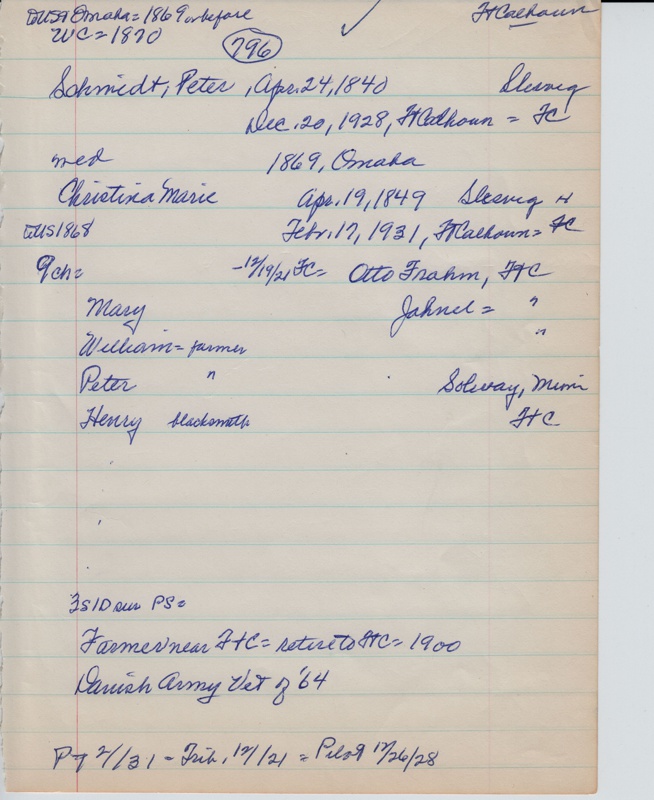 EUS Omaha = 1869 or before Ft Calhoun
WC = 1870
796
Schmidt, Peter, Apr. 24, 1840 Slesvig
Dec. 20, 1928, Ft Calhoun = FC
med 1869, Omaha
Christina Marie Apr. 19, 1849 Slesvig H
EUS 1868 Febr. 17, 1931, Ft Calhoun = FC
9 ch = - 12/19/21 FC = Otto Frahm, Ft C
Mary Jahnel = "
William = farmer "
Peter " Solway, Minn
Henry blacksmith Ft C
3S 1D sur PS =
Farmer near Ft C = retire to Ft C = 1900
Danish Army Vet of '64
PT 2/31 - Trib. 12/21 = Pilot 12/26/28